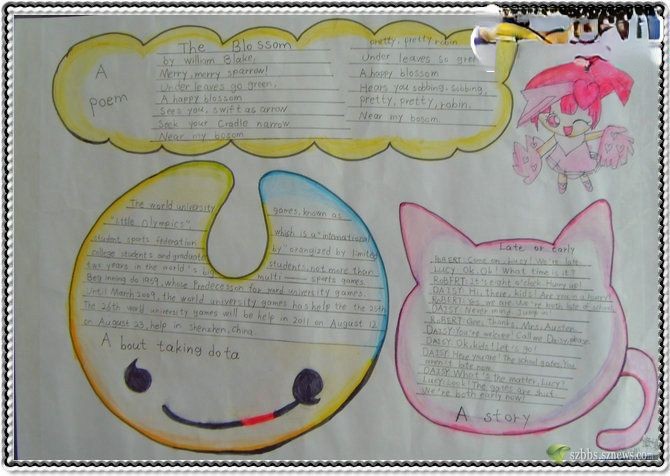 A
poem
The Blossom
by William Blake,
Merry, merry sparrow!
Under leaves go green,
A happy blossom
Sees you, swift as arrow
Seek your Cradle narrow
Near my bosom
pretty, pretty robin
Under leaves so green
A happy blossom
Hears you sobbing, sobbing,
pretty, pretty, robin.
Near my bosom
The world university games, known as
"Little Olympics", which is a "international
student sports fderation by" orangized by limited
college students and graduate students, not more than
two years in the world's big multi sports games.
Beginning do 1959, whose Predecesson for ward university games.
until March 2009, the world university games has help the the 25th
The 26th world university games will be help in 2011 on August 12
on August 23, help in shenzhen, china
A bout taking do ta
Late or early
ROBERT: Come on, Lucy! We're late.
LUCY: Ok, Ok! What time is it?
ROBERT: It's eight o'clock. Hurry up!
DAISY: Hi there, kids! Are you in a hurry?
ROBERT: Yes, we are. We're both late of school
DAISY: Never mind. Jump in
ROBERT: Gee, thanks, Mrs. Austen.
DAISY: You're welcome! Call me Daisy, please
DAISY: Ok, kids! Let's go!
DAISY: Here you are! The school gates. You
aren't late now.
DAISY: What's the matter, Lucy?
Lucy: Look! The gates are shut.
We're both early now!
A story
szbbs.sznews.com